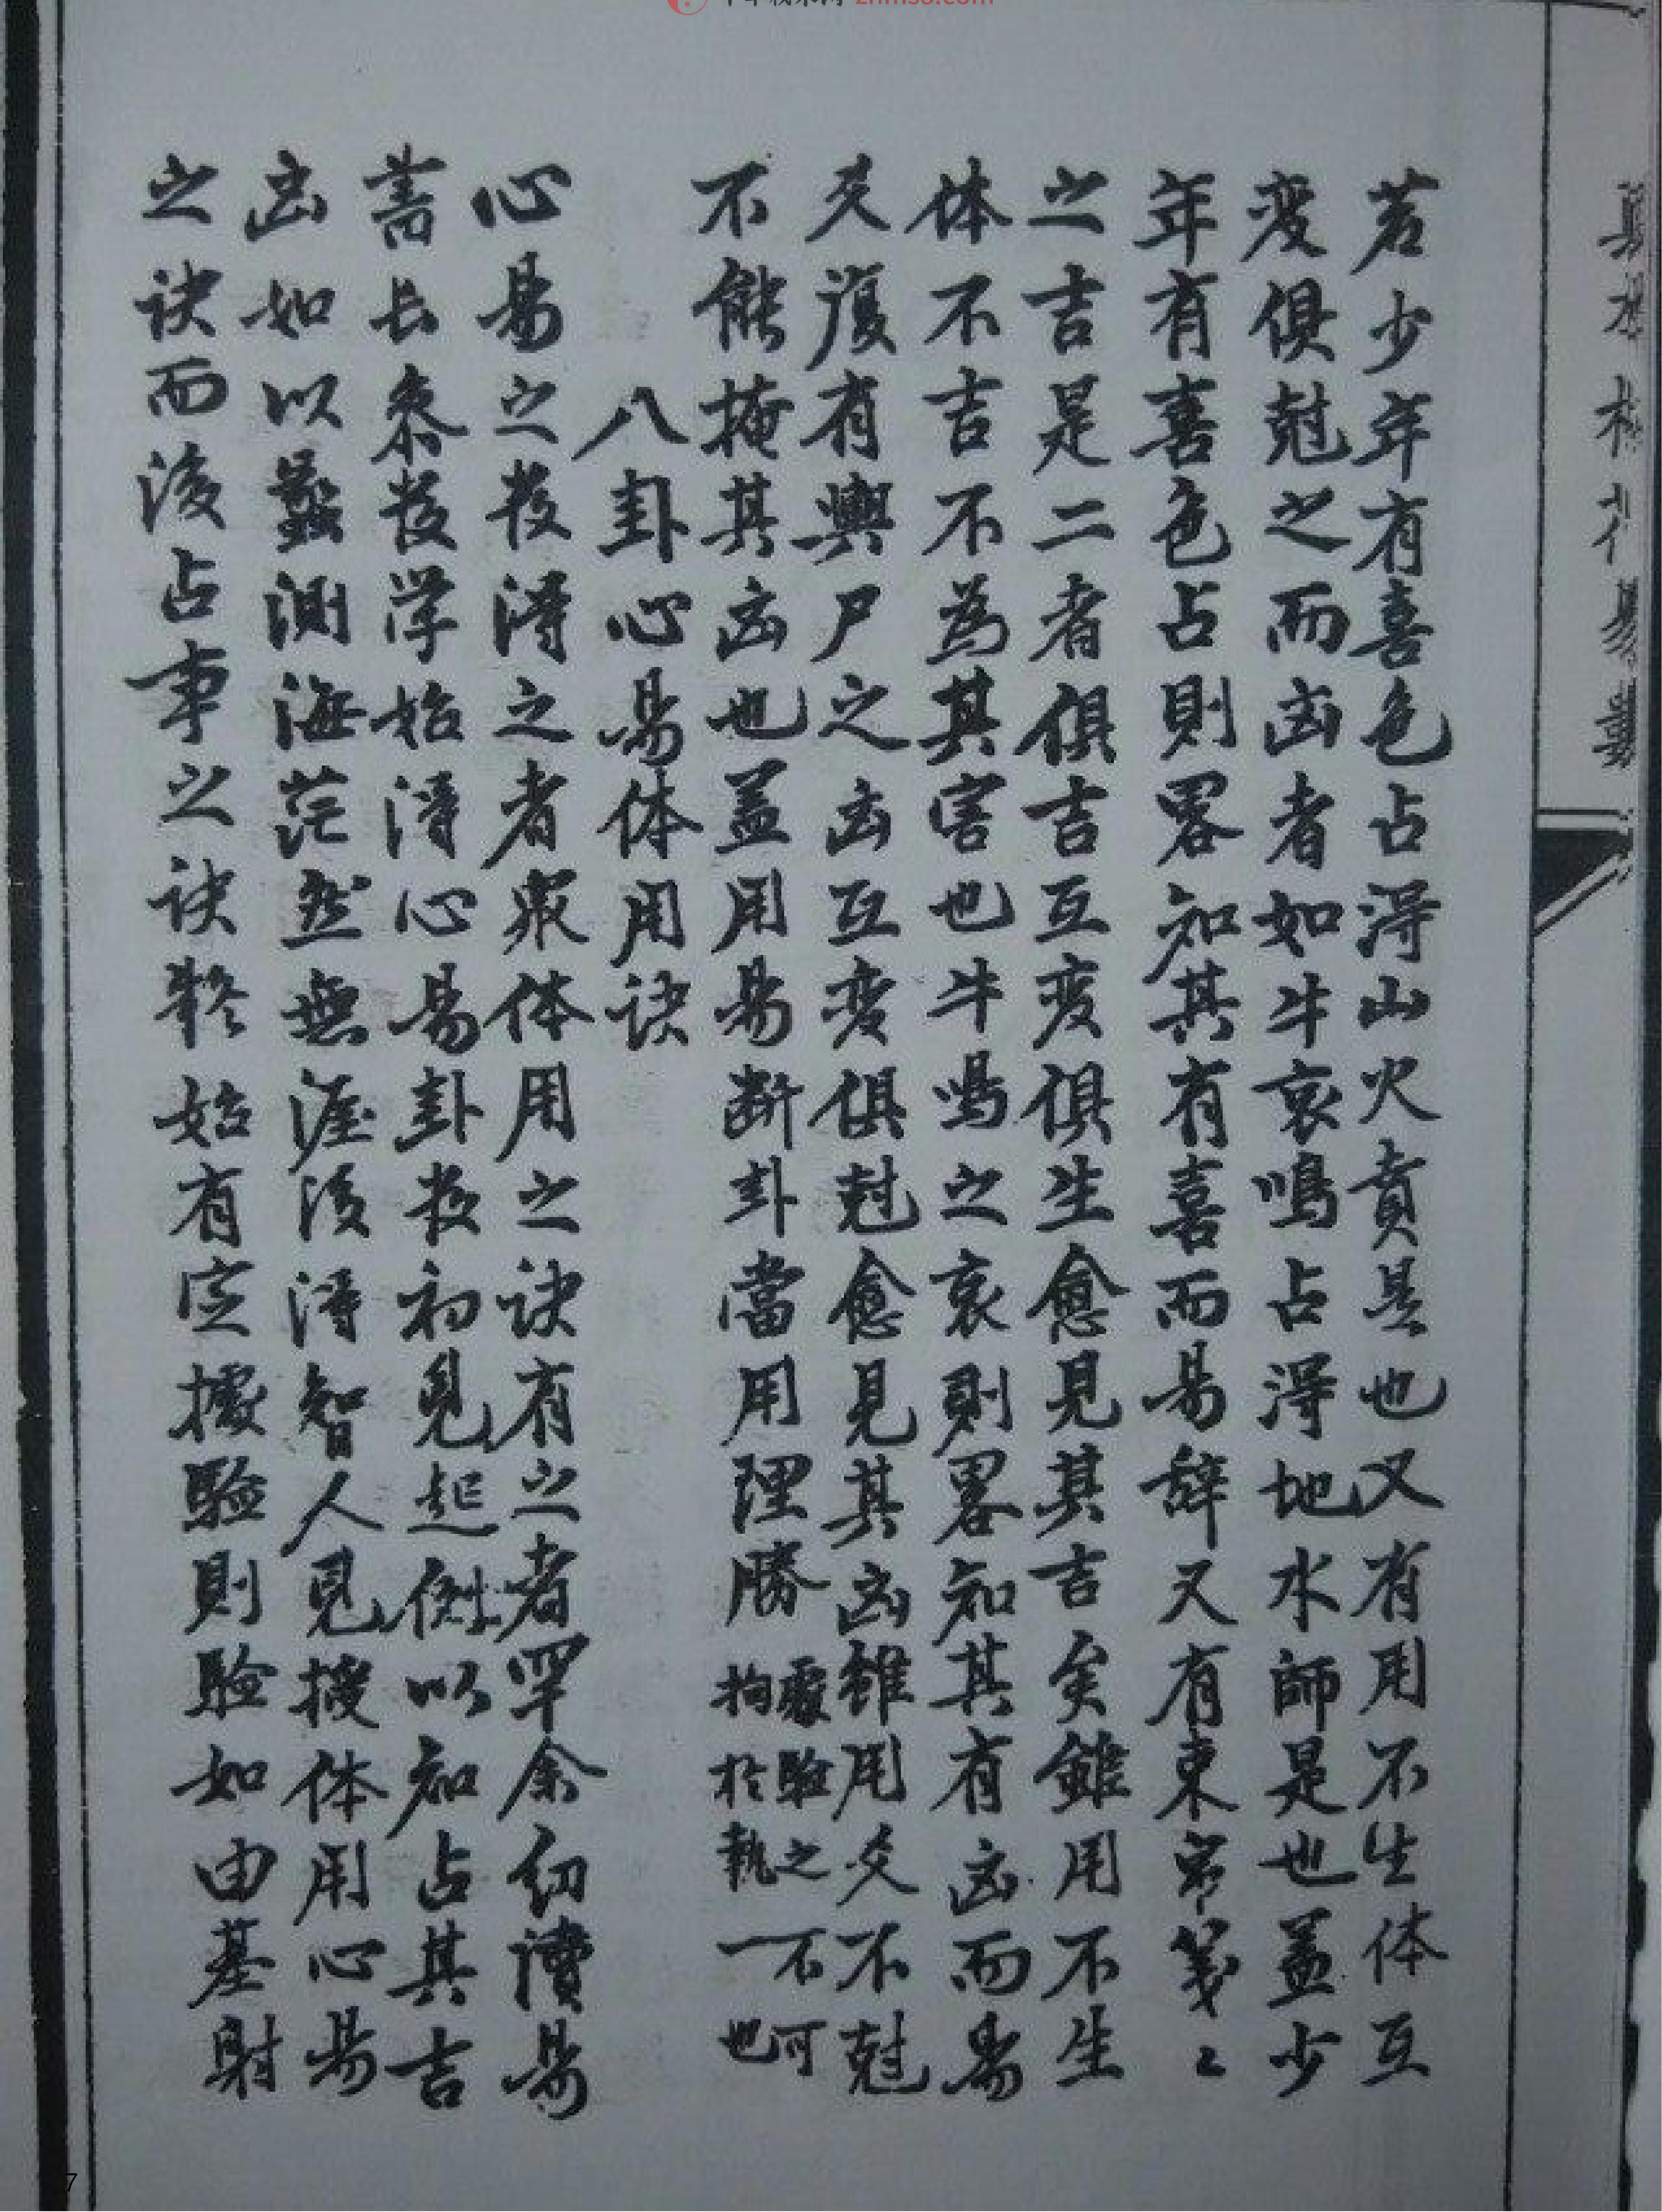 若少年有喜色占得山火賁是也又有用不生体互
变俱尅之而凶者如牛哀鳴占得地水師是也盖少
年有喜色占則畧知其有喜而易辞又有束帛箋〻
之吉是二者俱吉互变俱生愈見其吉矣雖用不生
体不吉不為其害也牛鳴之哀則畧知其有凶而易
爻復有輿尸之凶互变俱尅愈見其凶雖用爻不尅
不能掩其凶也盖用易断卦當用理勝處驗之不可
拘於執一也
八卦心易体用訣
心易之数得之者衆体用之訣有之者罕余幼讀易
書長叅数学始得心易卦数初見起例以知占其吉
凶如以蠡測海茫然無涯後得智人見授体用心易
之訣而後占事之訣終始有定據驗則驗如由基射